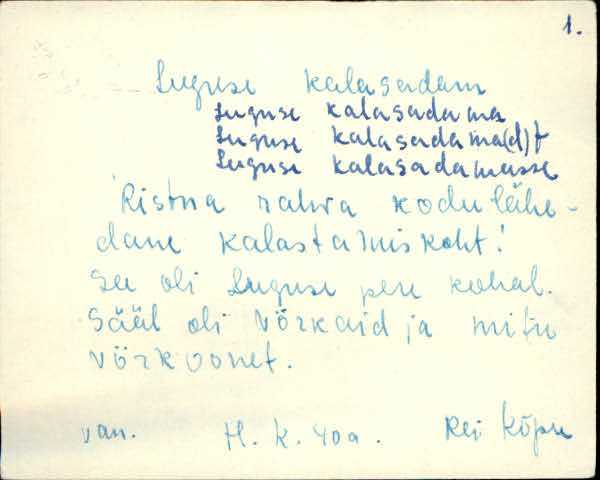 1.
Luguse kalasadam
Luguse kalasadama
Luguse kalasadama(d)t
Luguse kalasadamasse
Ristna rahva kodulähe-
dane kalastamiskoht!
See oli Luguse pere kohal.
Sääl oli võrkaid ja mitu
võrkoonet.
van. H. K. 40a. Rei Kõpu